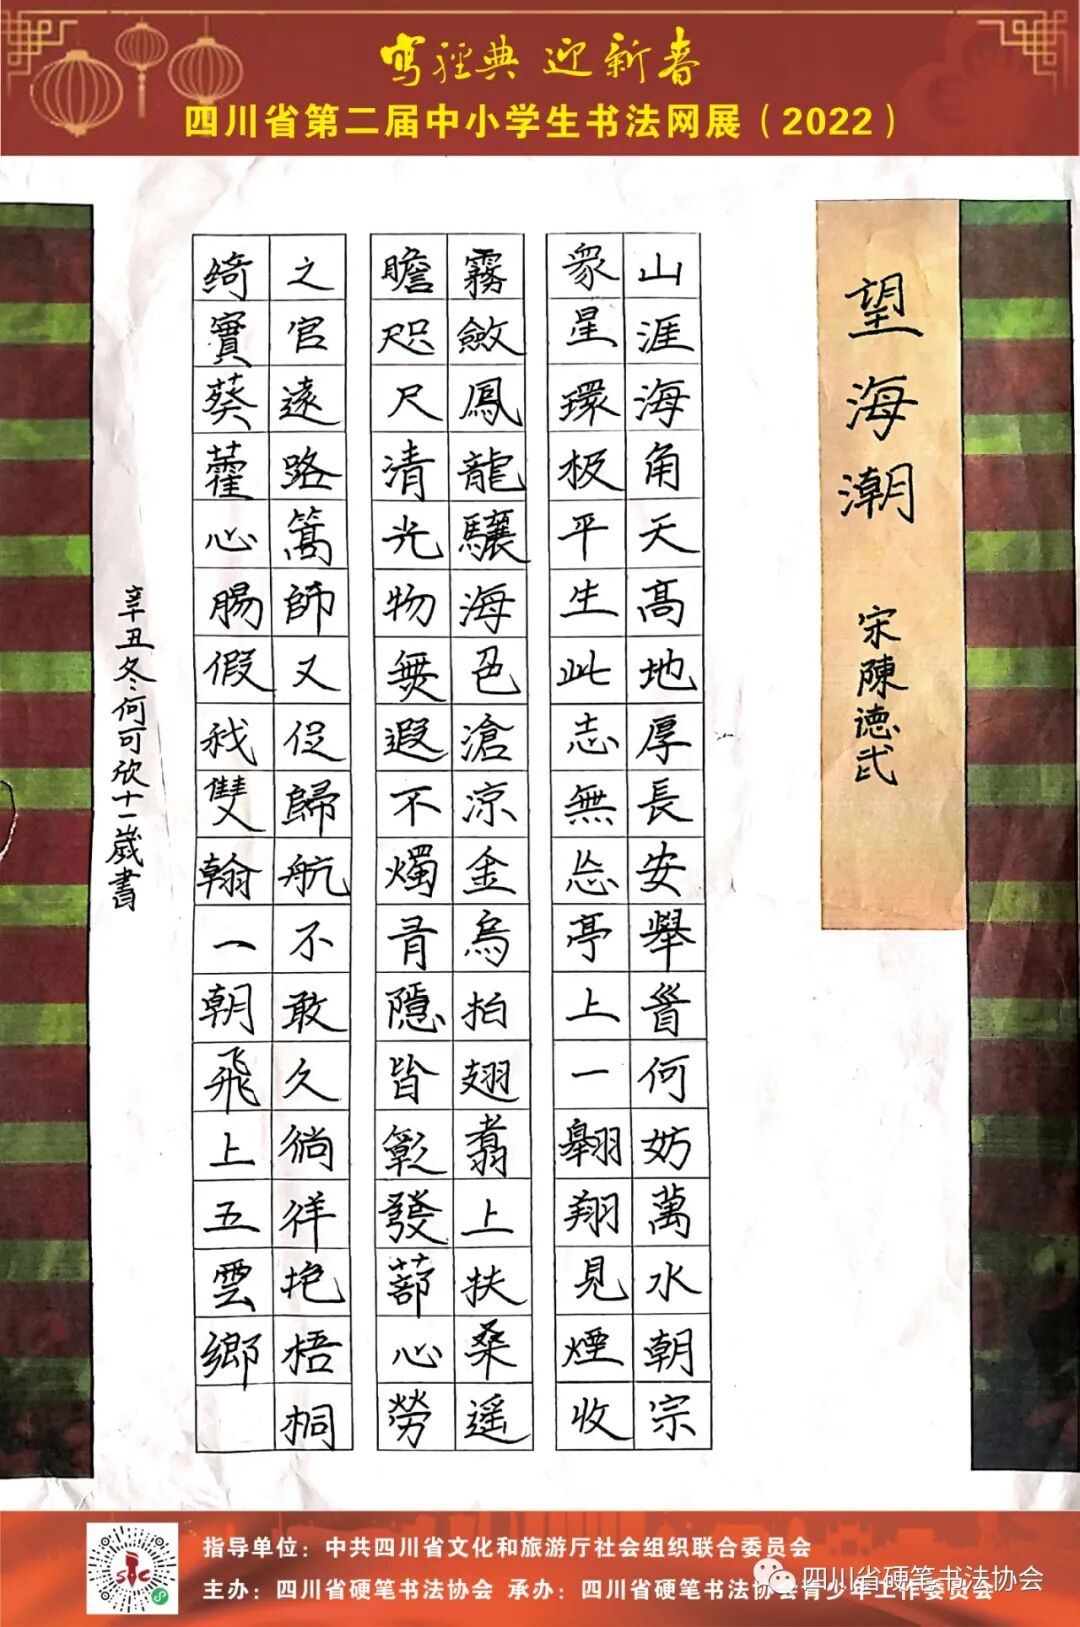 寫經典 迎新春
四川省第二届中小学生书法网展（2022）
望海潮 宋陳德武
山涯海角天高地厚長安舉何妨萬水朝宗
衆星環极平生此志無忘亭上一翱翔見煙收
霧斂鳳龍驤海色滄涼金烏拍翅翥上扶桑遥
瞻咫尺清光物無遐不燭隱皆彰發蔀心勞
之官遠路篙師又促歸航不敢久徜徉抱梧桐
绮實葵藿心腸假我雙翰一朝飛上五雲鄉
辛丑冬何可欣十一歲書
指导单位：中共四川省文化和旅游厅社会组织联合委员会
主办：四川省硬笔书法协会 承办：四川省硬笔书法协会青少年工作委员会
四川省硬笔书法协会